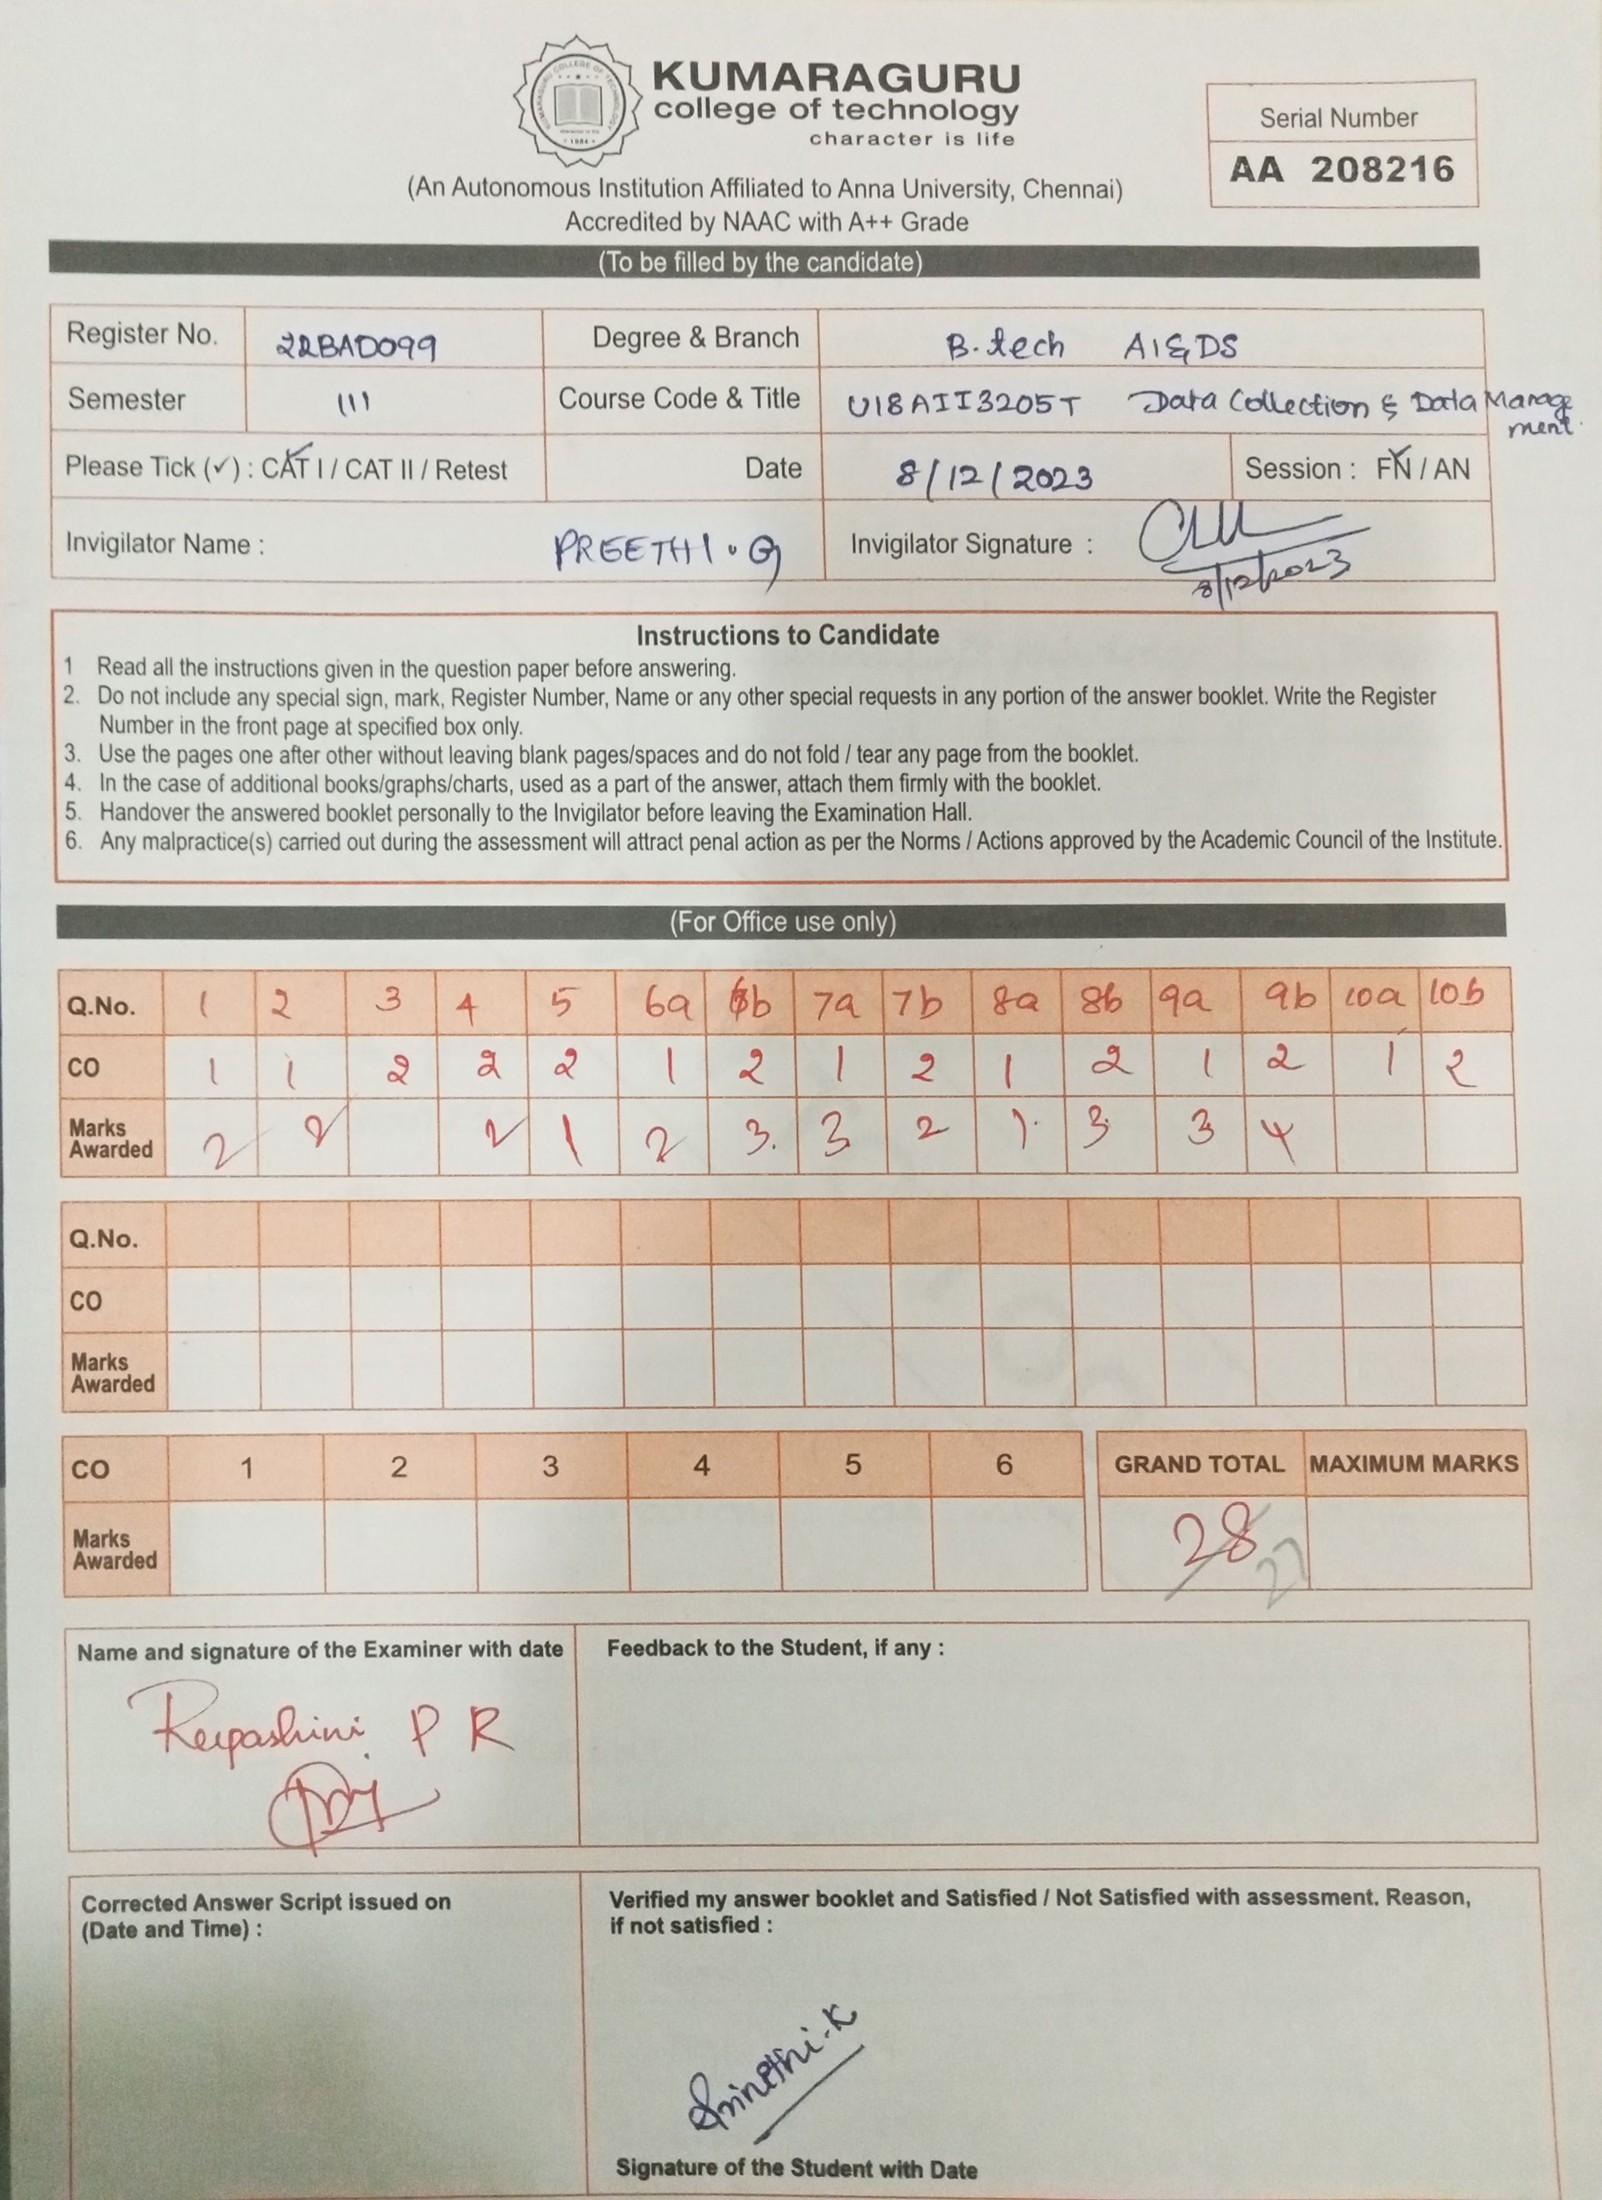 KUMARAGURU
college of technology
character is life
Serial Number
AA 208216
(An Autonomous Institution Affiliated to Anna University, Chennai)
Accredited by NAAC with A++ Grade
(To be filled by the candidate)
Register No. 22BAD099 Degree & Branch B.tech AI&DS
Semester III Course Code & Title U18AII3205T Data Collection & Data Manage
ment.
Please Tick (✓) : CAT I / CAT II / Retest Date 8/12/2023 Session : FN / AN
Invigilator Name : PREETHI.G Invigilator Signature :
8/12/2023
Instructions to Candidate
1 Read all the instructions given in the question paper before answering.
2. Do not include any special sign, mark, Register Number, Name or any other special requests in any portion of the answer booklet. Write the Register
Number in the front page at specified box only.
3. Use the pages one after other without leaving blank pages/spaces and do not fold / tear any page from the booklet.
4. In the case of additional books/graphs/charts, used as a part of the answer, attach them firmly with the booklet.
5. Handover the answered booklet personally to the Invigilator before leaving the Examination Hall.
6. Any malpractice(s) carried out during the assessment will attract penal action as per the Norms / Actions approved by the Academic Council of the Institute.
(For Office use only)
Q.No. 1 2 3 4 5 6a 6b 7a 7b 8a 8b 9a 9b 10a 10b
CO 1 1 2 2 2 1 2 1 2 1 2 1 2 1 2
Marks
Awarded 2 2 2 1 2 3. 3 2 1. 3 3 4
Q.No.
CO
Marks
Awarded
CO 1 2 3 4 5 6 GRAND TOTAL MAXIMUM MARKS
Marks
Awarded 28 27
Name and signature of the Examiner with date Feedback to the Student, if any :
P R
Corrected Answer Script issued on
(Date and Time) :
Verified my answer booklet and Satisfied / Not Satisfied with assessment. Reason,
if not satisfied :
Srinethi.K
Signature of the Student with Date